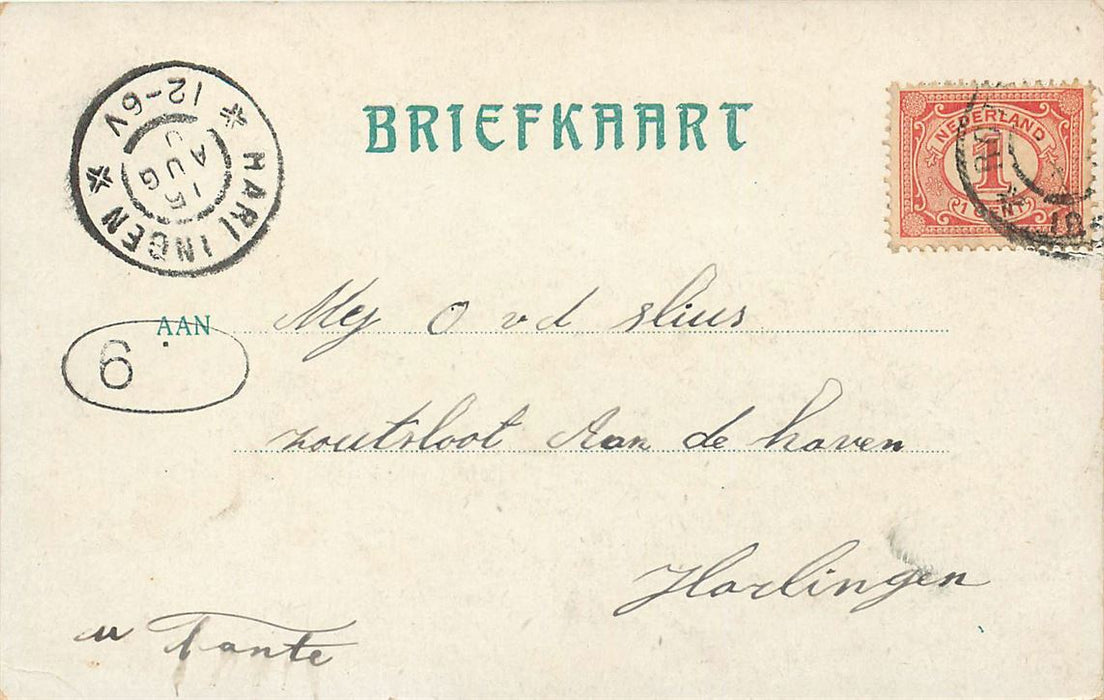 HARLINGEN
12-6V
15
AUG
BRIEFKAART
NEDERLAND
1
1 CENT
AAN
6
Mej O vd Sluis
zoutsloot Aan de haven
Harlingen
u Tante